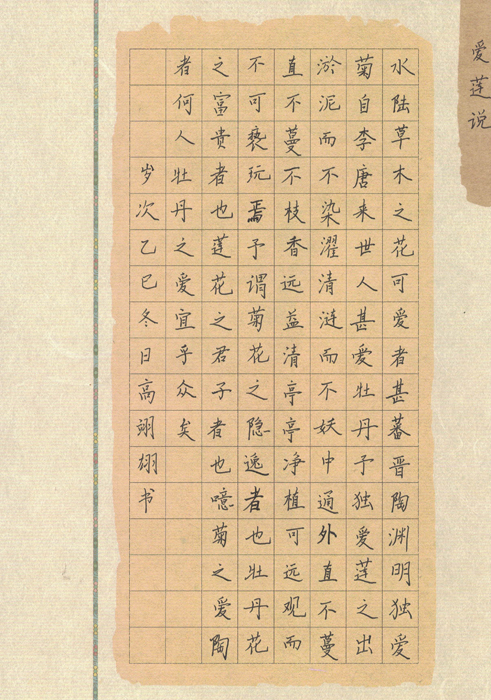 爱莲说
水陆草木之花可爱者甚蕃晋陶渊明独爱
菊自李唐来世人甚爱牡丹予独爱莲之出
淤泥而不染濯清涟而不妖中通外直不蔓
直不蔓不枝香远益清亭亭净植可远观而
不可亵玩焉予谓菊花之隐逸者也牡丹花
之富贵者也莲花之君子者也噫菊之爱陶
者何人牡丹之爱宜乎众矣
岁次乙巳冬日高翊书